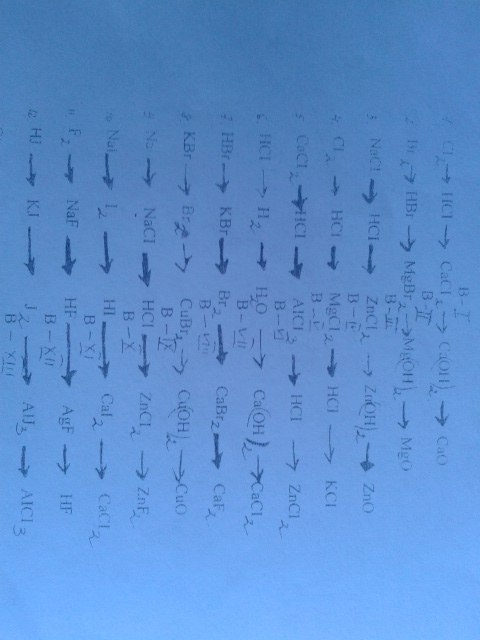 B-I
1. Cl2 → HCl → CaCl2 → Ca(OH)2 → CaO
B-II
2. Br2 → HBr → MgBr2 → Mg(OH)2 → MgO
B-III
3. NaCl → HCl → ZnCl2 → Zn(OH)2 → ZnO
B-IV
4. Cl2 → HCl → MgCl2 → HCl → KCl
B-V
5. CaCl2 → HCl → AlCl3 → HCl → ZnCl2
B-VI
6. HCl → H2 → H2O → Ca(OH)2 → CaCl2
B-VII
7. HBr → KBr → Br2 → CaBr2 → CaF2
B-VIII
8. KBr → Br2 → CuBr2 → Cu(OH)2 → CuO
B-IX
9. Na → NaCl → HCl → ZnCl2 → ZnF2
B-X
10. NaI → I2 → HI → CaI2 → CaCl2
B-XI
11. F2 → NaF → HF → AgF → HF
B-XII
12. HJ → KJ → J2 → AlJ3 → AlCl3
B-XIII